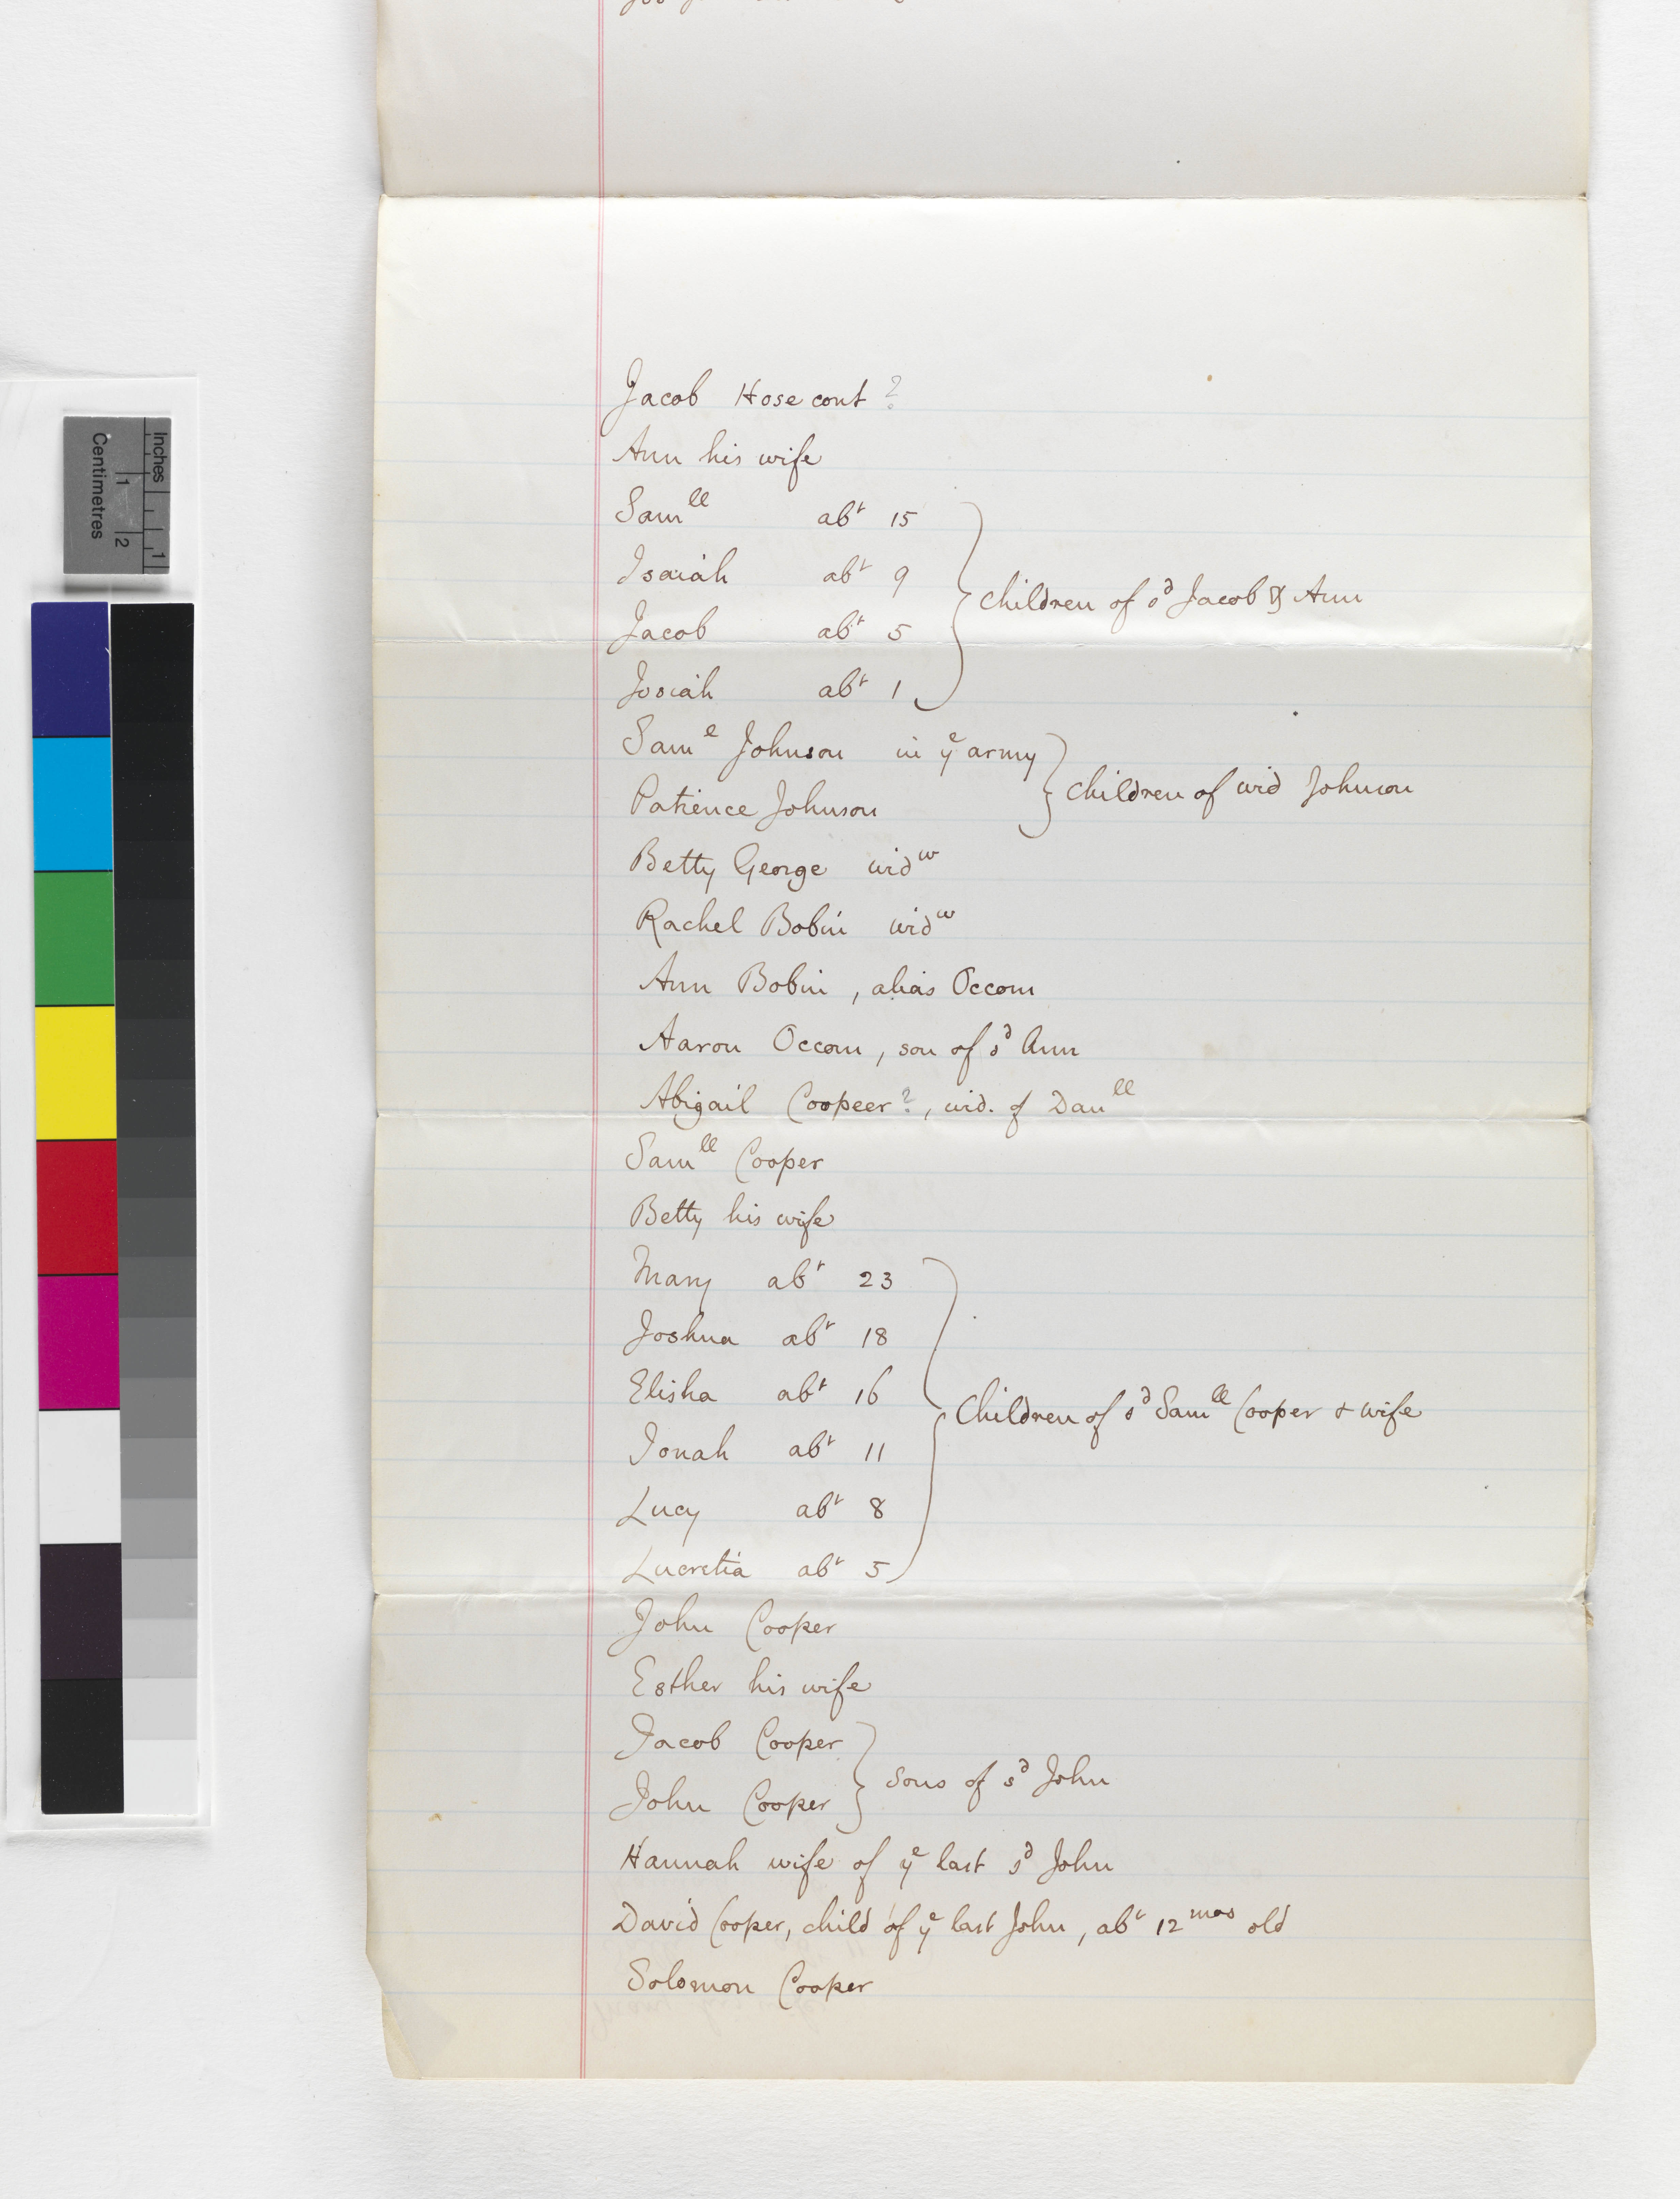 Jacob Hosecont ?
Ann his wife
Sam^ll ab^t 15
Isaiah ab^t 9
children of s^d Jacob & Ann
Jacob ab^t 5
Josiah ab^t 1
Sam^l Johnson in y^e army
children of wid Johnson
Patience Johnson
Betty George wid^w
Rachel Bobin wid^w
Ann Bobin, alias Occom
Aaron Occom, son of s^d Ann
Abigail Coopeer ?, wid. of Dan^ll
Sam^ll Cooper
Betty his wife
Mary ab^t 23
Joshua ab^t 18
Elisha ab^t 16
Children of s^d Sam^ll Cooper & wife
Jonah ab^t 11
Lucy ab^t 8
Lucretia ab^t 5
John Cooper
Esther his wife
Jacob Cooper
sons of s^d John
John Cooper
Hannah wife of y^e last s^d John
David Cooper, child of y^e last John, ab^t 12^mos old
Solomon Cooper
Inches
1
Centimetres
1
2